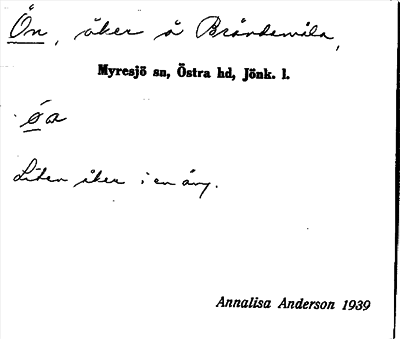 Ön, åker å Brändemåla,
Myresjö sn, Östra hd, Jönk. l.
Liten åker i en äng.
Annalisa Anderson 1939